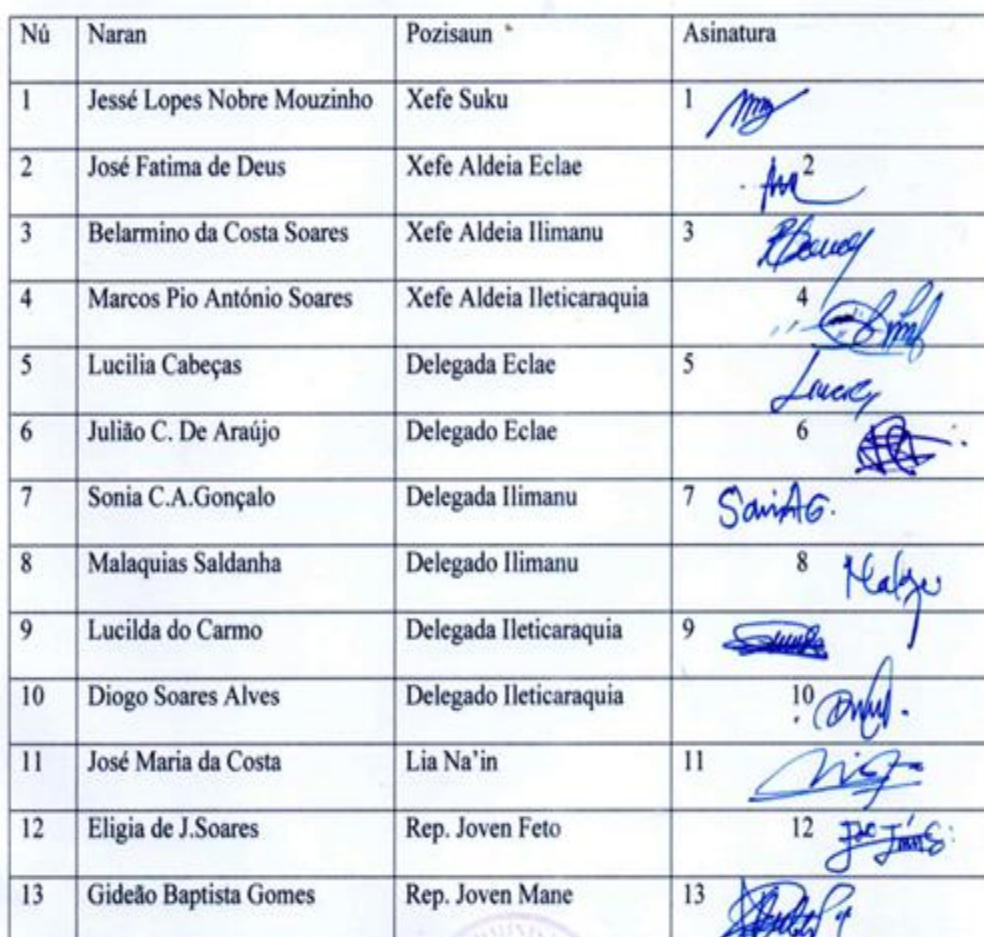 Nú Naran Pozisaun Asinatura
1 Jessé Lopes Nobre Mouzinho Xefe Suku 1
2 José Fatima de Deus Xefe Aldeia Eclae 2
3 Belarmino da Costa Soares Xefe Aldeia Ilimanu 3
4 Marcos Pio António Soares Xefe Aldeia Ileticaraquia 4
5 Lucilia Cabeças Delegada Eclae 5
6 Julião C. De Araújo Delegado Eclae 6
7 Sonia C.A.Gonçalo Delegada Ilimanu 7
8 Malaquias Saldanha Delegado Ilimanu 8
9 Lucilda do Carmo Delegada Ileticaraquia 9
10 Diogo Soares Alves Delegado Ileticaraquia 10
11 José Maria da Costa Lia Na'in 11
12 Eligia de J.Soares Rep. Joven Feto 12
13 Gideão Baptista Gomes Rep. Joven Mane 13